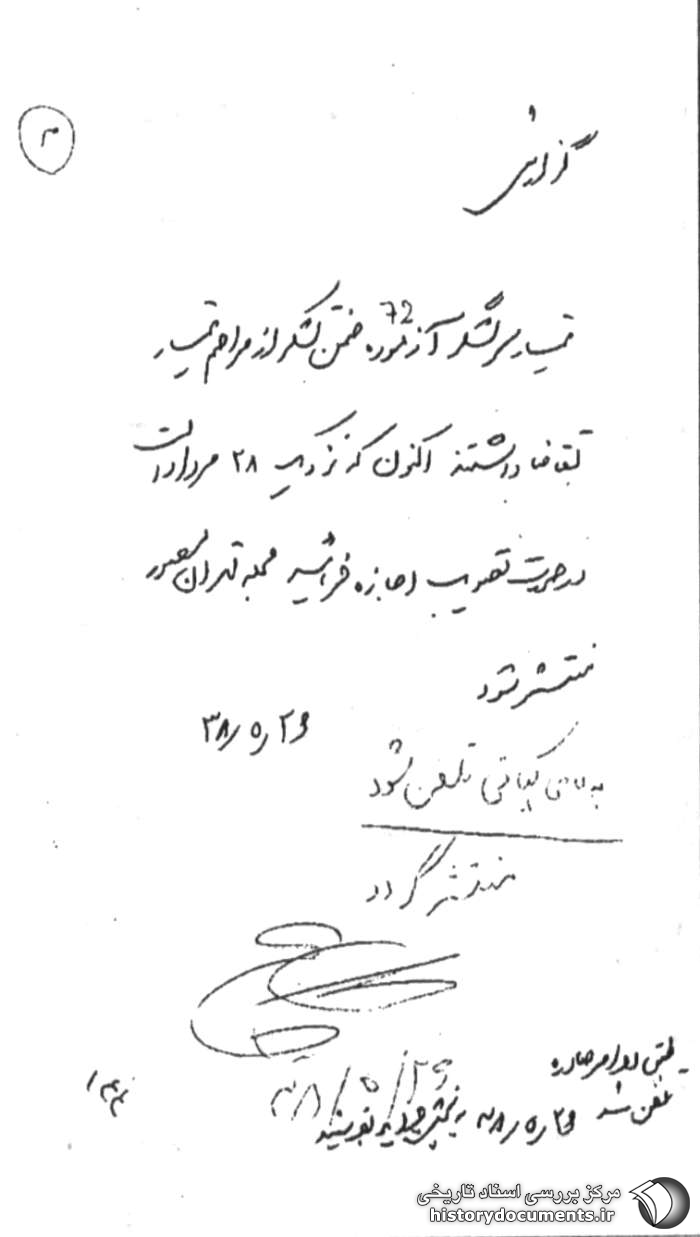 ۳
گزارش
72
تیمسار سرلشگر آزموده ضمن تشکر از مراحم تیمسار
تقاضا داشتند اکنون که نزدیک ۲۸ مرداد است
در صورت تصویب اجازه فرمائید مجله تهران مصور
منتشر شود
۳۸٫۵٫۲۶
به آقای کیانی تلفن شود
منتشر گردد
۳۸/۵/۲۶
طبق اوامر صادره
تلفن شد ۳۸٫۵٫۲۶
۱۴۴
مرکز بررسی اسناد تاریخی
historydocuments.ir